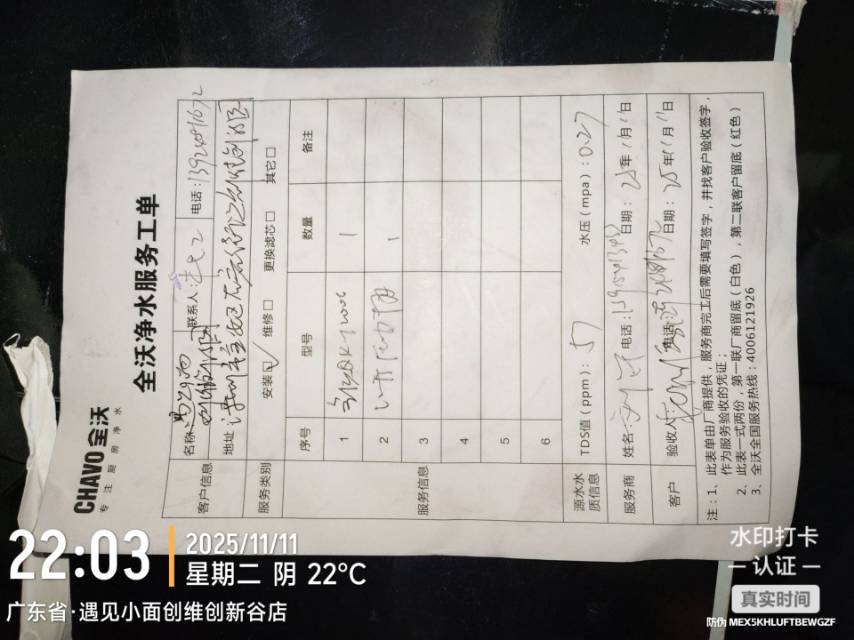 CHAVO全沃
专注厨房净水
全沃净水服务工单
客户信息
名称: 联系人: 电话:13924891672
地址
服务类别 安装☑ 维修□ 更换滤芯□ 其它□
服务信息
序号 型号 数量 备注
1 1
2 1
3
4
5
6
源水水质信息 TDS值(ppm):57 水压(mpa):0.27
服务商 姓名: 电话: 日期:25年11月11日
客户 验收人: 电话: 日期:25年11月11日
注:1、此表单由厂商提供,服务商完工后需要填写签字,并找客户验收签字,
作为服务验收的凭证;
2、此表一式两份,第一联厂商留底(白色),第二联客户留底(红色)
3、全沃全国服务热线:4006121926
22:03
2025/11/11
星期二 阴 22℃
广东省·遇见小面创维创新谷店
水印打卡
认证
真实时间
防伪 MEX5KHLUFTBEWGZF